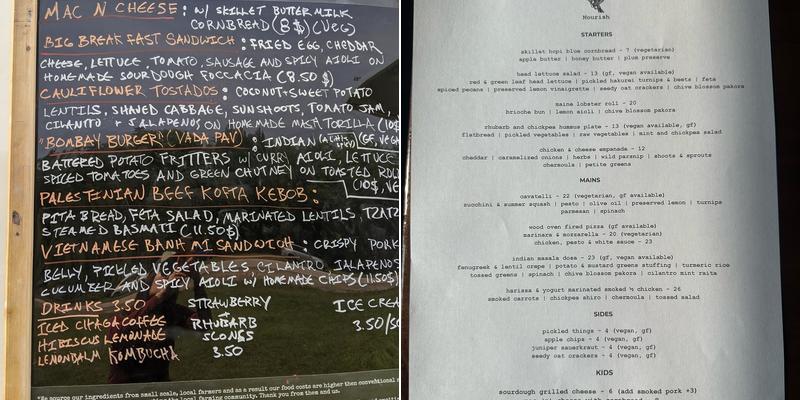 MAC N CHEESE : W/ SKILLET BUTTER MILK
CORNBREAD (8$) (VEG)
BIG BREAKFAST SANDWICH : FRIED EGG, CHEDDAR
CHEESE, LETTUCE, TOMATO, SAUSAGE AND SPICY AIOLI ON
HOMEMADE SOURDOUGH FOCCACIA (8.50 $)
CAULIFLOWER TOSTADOS : COCONUT + SWEET POTATO
LENTILS, SHAVED CABBAGE, SUNSHOOTS, TOMATO JAM,
CILANTO + JALAPENOS ON HOMEMADE MASA TORILLA (10$
"BOMBAY BURGER" (VADA PAV) : INDIAN (GF, VEG
BATTERED POTATO FRITTERS W/ CURRY AIOLI, LETTUCE
SPICED TOMATOES AND GREEN CHUTNEY ON TOASTED ROLL
(10$, VE
PALESTINIAN BEEF KOFTA KEBOB :
PITA BREAD, FETA SALAD, MARINATED LENTILS, TZATZ
STEAMED BASMATI (11.50$)
VIETNAMESE BANH MI SANDWICH : CRISPY PORK
BELLY, PICKLED VEGETABLES, CILANTRO, JALAPENOS
CUCUMBER AND SPICY AIOLI W/ HOMEMADE CHIPS (11.50$)
DRINKS 3.50
ICED CHAGA COFFEE
HIBISCUS LEMONADE
LEMONBALM KOMBUCHA
STRAWBERRY
+
RHUBARB
SCONES
3.50
ICE CREA
3.50/SC
*We source our ingredients from small scale, local farmers and as a result our food costs are higher then conventional
farming community. Thank you from them and us.
Nourish
STARTERS
skillet hopi blue cornbread - 7 (vegetarian)
apple butter | honey butter | plum preserve
head lettuce salad - 13 (gf, vegan available)
red & green leaf head lettuce | pickled hakurei turnips & beets | feta
spiced pecans | preserved lemon vinaigrette | seedy oat crackers | chive blossom pakora
maine lobster roll - 20
brioche bun | lemon aioli | chive blossom pakora
rhubarb and chickpea hummus plate - 13 (vegan available, gf)
flatbread | pickled vegetables | raw vegetables | mint and chickpea salad
chicken & cheese empanada - 12
cheddar | caramelized onions | herbs | wild parsnip | shoots & sprouts
chermoula | petite greens
MAINS
cavatelli - 22 (vegetarian, gf available)
zucchini & summer squash | pesto | olive oil | preserved lemon | turnips
parmesan | spinach
wood oven fired pizza (gf available)
marinara & mozzarella - 20 (vegetarian)
chicken, pesto & white sauce - 23
indian masala dosa - 23 (gf, vegan available)
fenugreek & lentil crepe | potato & mustard greens stuffing | turmeric rice
tossed greens | spinach | chive blossom pakora | cilantro mint raita
harissa & yogurt marinated smoked ½ chicken - 26
smoked carrots | chickpea shiro | chermoula | tossed salad
SIDES
pickled things - 4 (vegan, gf)
apple chips - 4 (vegan, gf)
juniper sauerkraut - 4 (vegan, gf)
seedy oat crackers - 4 (vegan, gf)
KIDS
sourdough grilled cheese - 6 (add smoked pork +3)